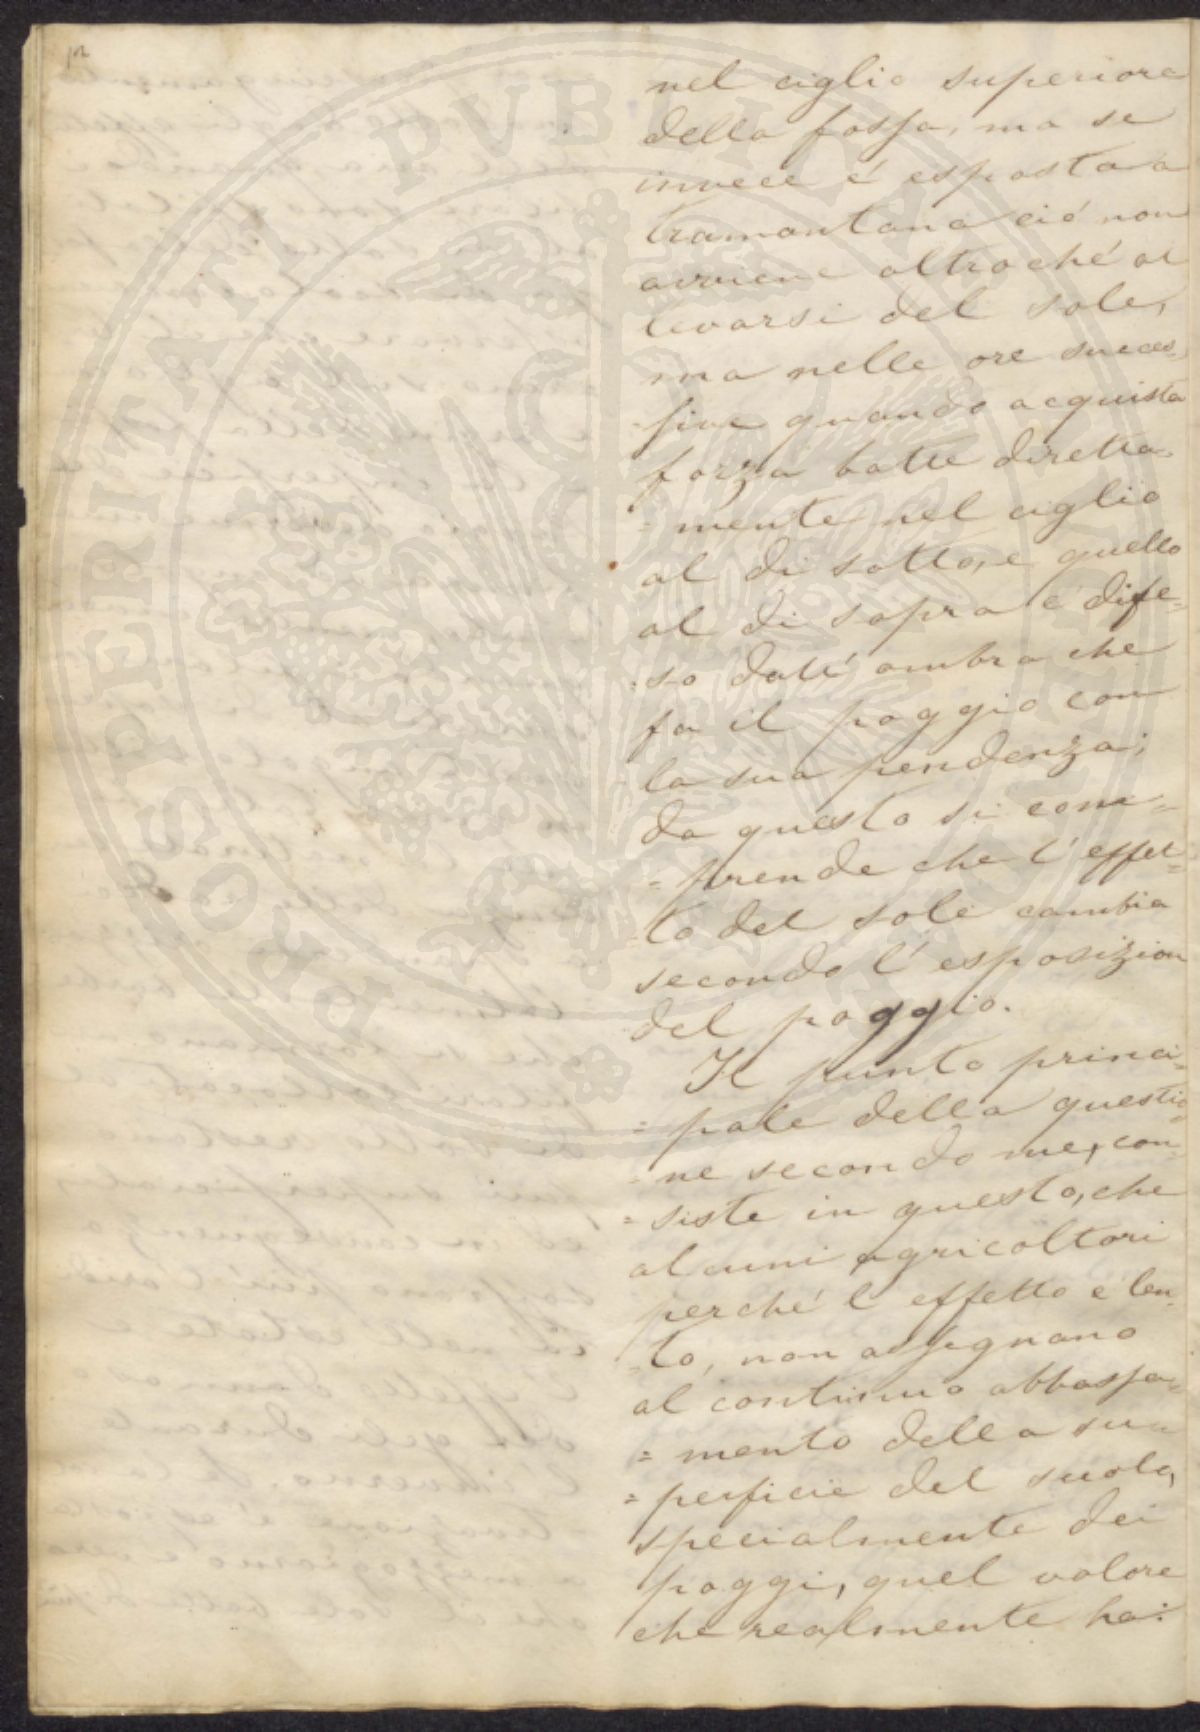 12
nel ciglio superiore
della fossa, ma se
invece é esposta a
tramontana ció non
avviene altro ché al
levarsi del sole,
ma nelle ore succes
=sive quando acquista
forza batte diretta
=mente nel ciglio
al di sotto, e quello
al di sopra é dife=
=so dall' ombra che
fa il poggio con
la sua pendenza;
da questo si com=
=prende che l' effet=
=to del sole cambia
secondo l' esposizion
del poggio.
Il punto princi=
=pale della questio
=ne secondo me, con
=siste in questo, che
alcuni agricoltori
perché l' effetto é len
=to, non assegnano
al continuo abbassa=
=mento della su=
=perficie del suolo,
specialmente dei
poggi, quel valore
che realmente ha:
PROSPERITATI PVBLICAE